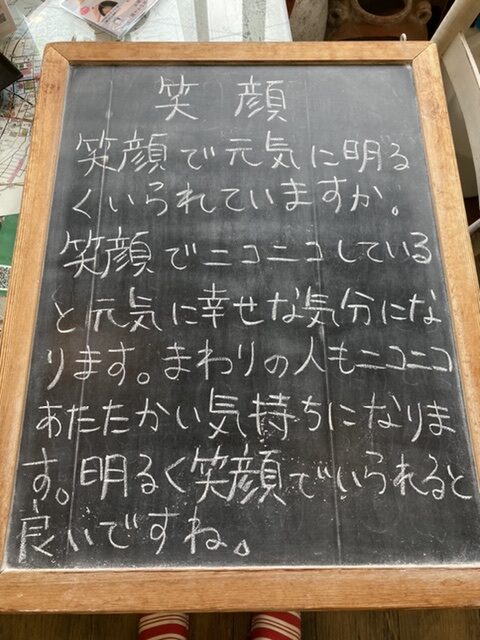 笑顔
笑顔で元気に明る
くいられていますか。
笑顔でニコニコしている
と元気に幸せな気分にな
ります。まわりの人もニコニコ
あたたかい気持ちになりま
す。明るく笑顔でいられると
良いですね。